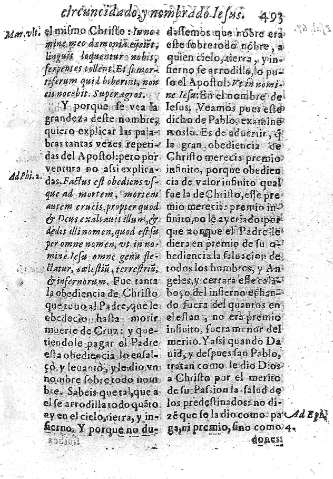 circuncidado, y nombrado Iesus. 493
Mar. vlt.
el mismo Christo: In no-
mine meo dæmonia eijcient,
linguis loquentur nobis,
serpentes tollent. Et si mor-
tiferum quid biberint, non
eis nocebit. Super ægros.
Y porque se vea la
grandeza deste nombre,
quiero explicar las pala-
bras tantas vezes repeti-
das del Apostol: pero por
ventura no assi explica-
Ad Phi. 2.
das. Factus est obediens vs-
que ad mortem, mortem
autem crucis, propter quod
& Deus exaltauit illum, &
dedit illi nomen, quod est su
per omne nomen, vt in no-
mine Iesu omne genu fle-
ctatur, cælestiū, terrestriū,
& infernorum. Fue tanta
la obediencia de Christo
que tuuo al Padre, que le
obedecio hasta morir
muerte de Cruz: y que-
tiendole pagar el Padre
esta obediencia lo ensal-
çò y leuantò, y le dio vn
nombre sobre todo nom
bre. Sabeis que tal, que a
el se arrodilla todo quāto
ay en el cielo, tierra, y in-
fierno. Y porque no du-
dassemos que nōbre era
este sobre todo nōbre, a
quien cielo, tierra, y in-
fierno se arrodilla, lo pu
so el Apostol: Vt in nomi-
ne Iesu. En el nombre de
Iesus. Veamos pues este
dicho de Pablo, examine
moslo. Es de aduertir, q̄
la gran obediencia de
Christo merecia premio
infinito, porque obedien
cia de valor infinito qual
fue la de Christo, esse pre
mio merecia: premio in-
finito, no le ay criado por
que aunque el Padre le
diera en premio de su o-
bediencia la saluacion de
todos los hombres, y An
geles, y cerrara esse cala-
boço del infierno echan-
do fuera del quantos en
el estan, no era premio
infinito, fuera menor del
merito. Y assi quando Da
uid, y despues san Pablo,
tratan como le dio Dios
a Christo por el merito
de su Passion la salud de
los predestinados: no di-
zē que se la dio como pa
ga, ni premio, sino como
Ad Eph. 4.
dones: